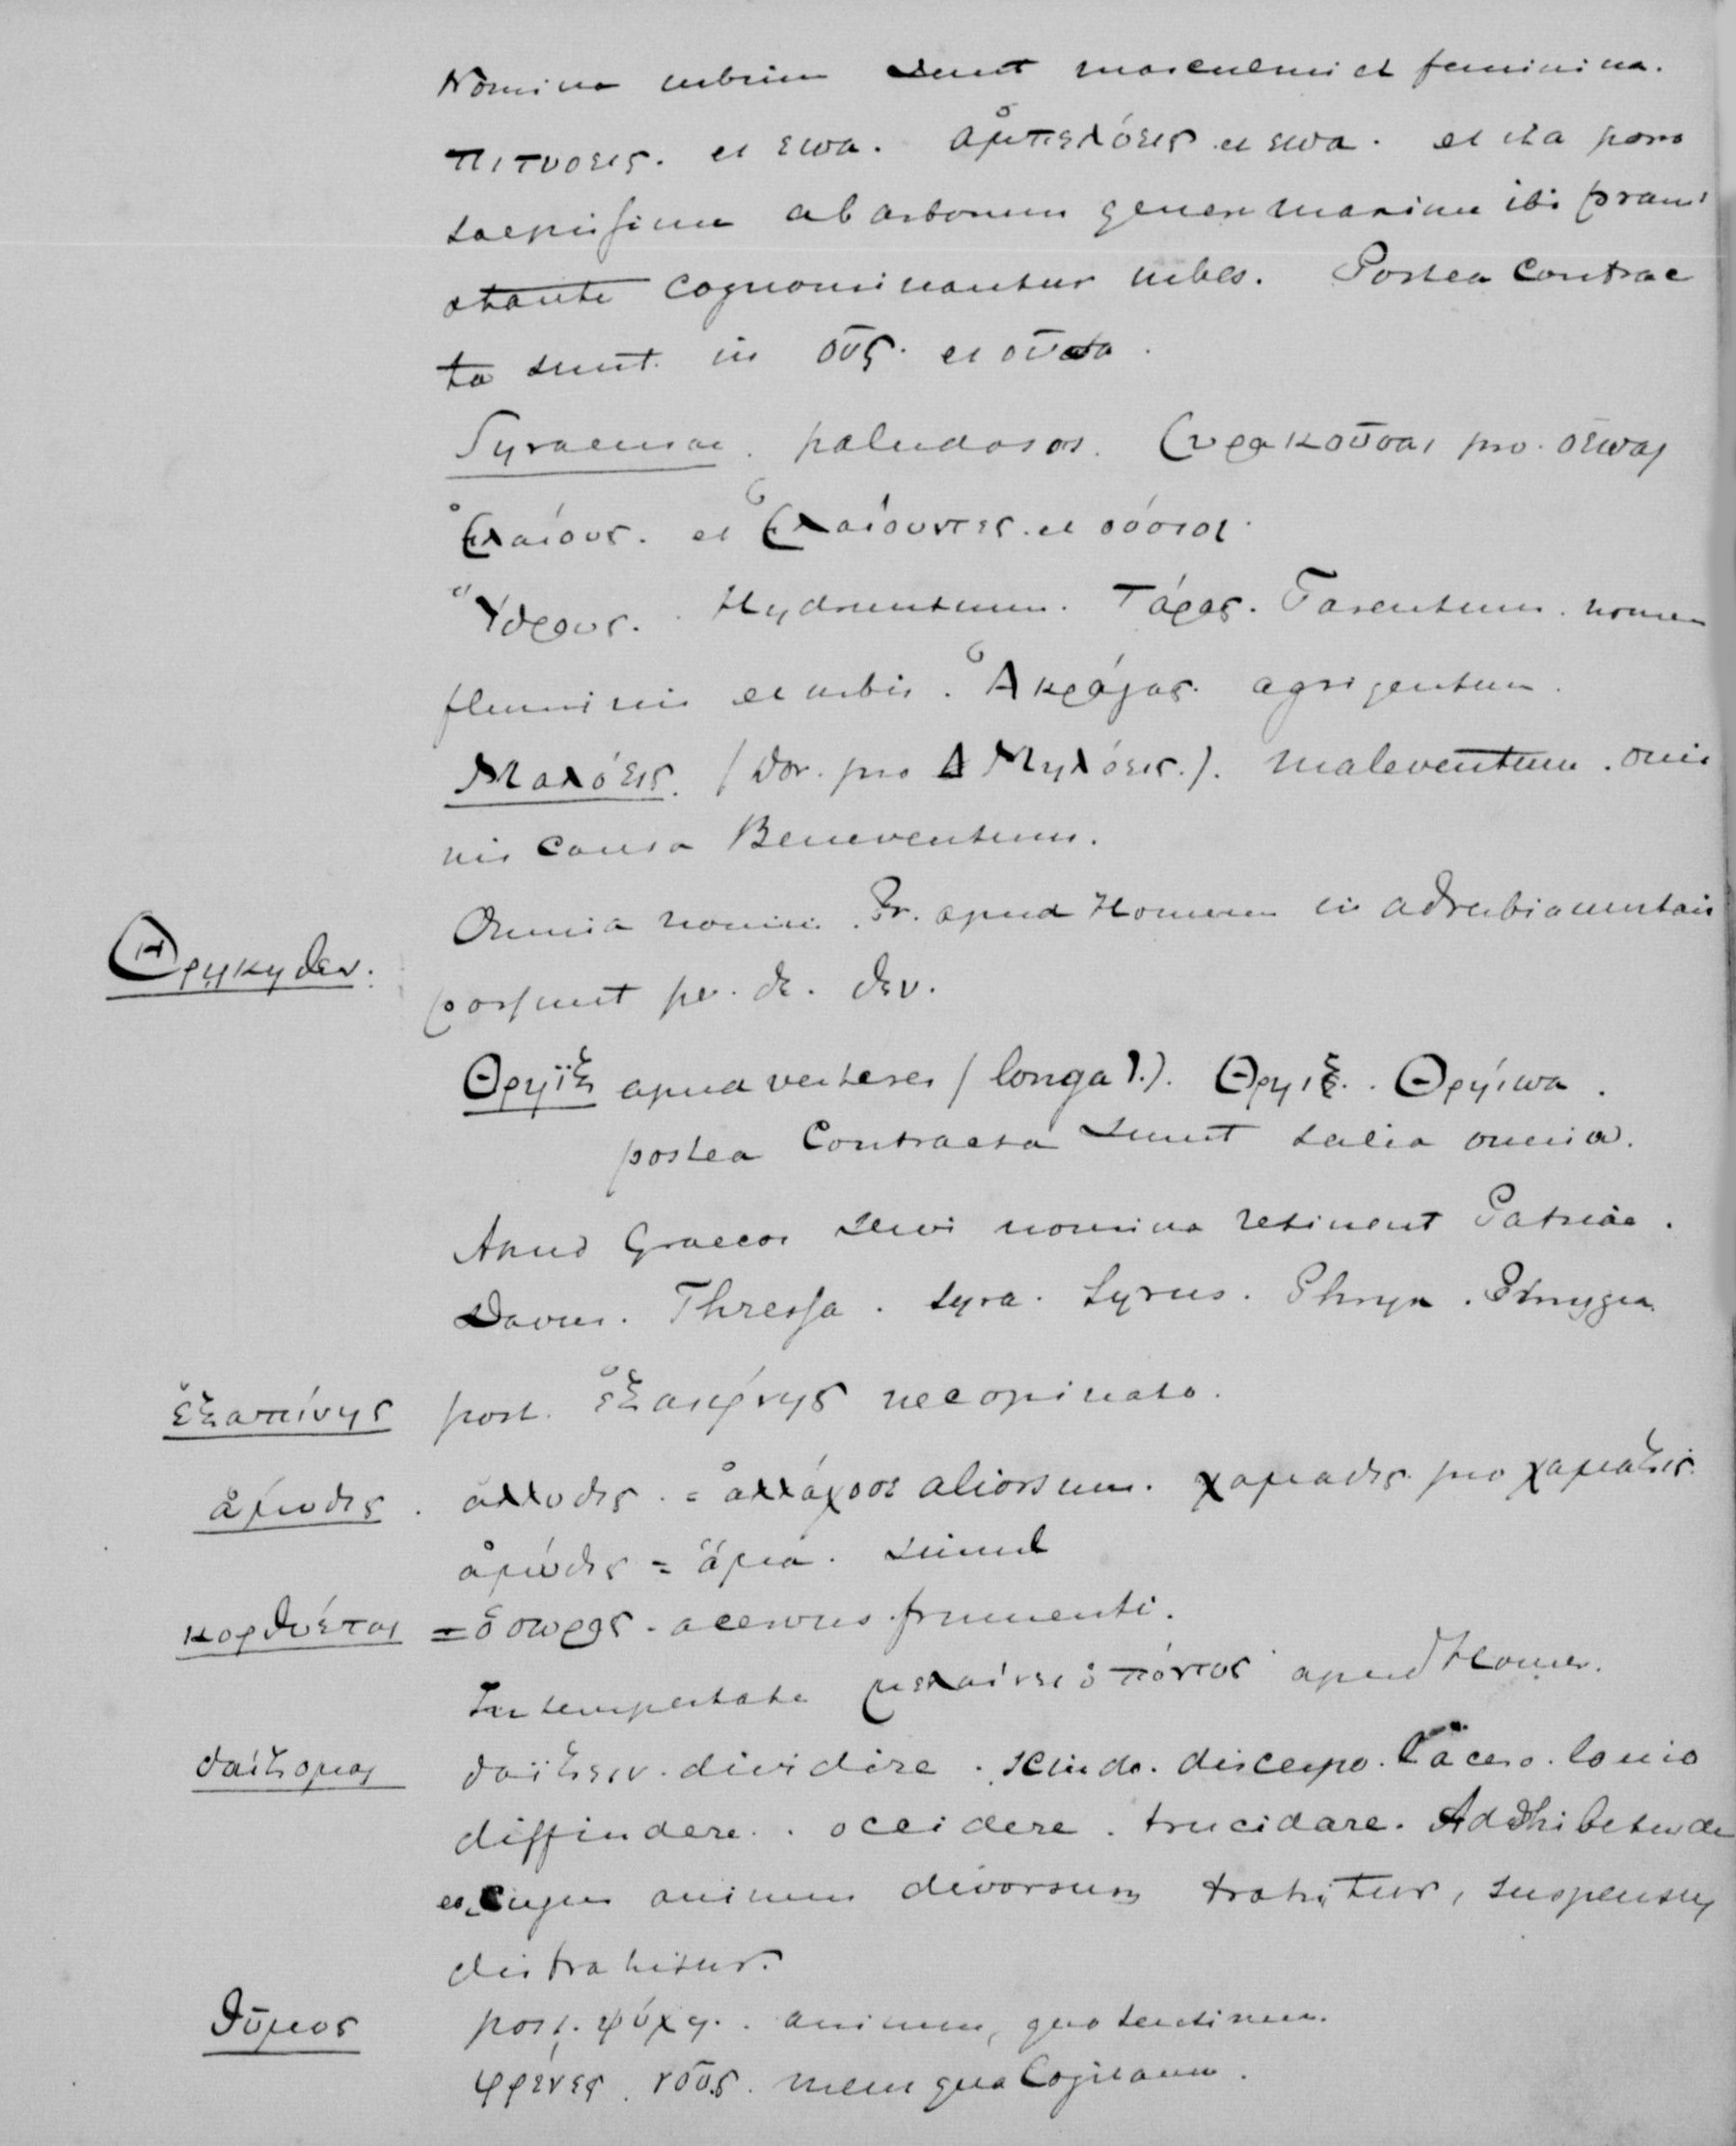 Nomina urbium sunt masculini et feminina.
πιτυοεις. et εσσα. ἀμπελόεις et εσσα. et ita porro
saepissime ab arborum genere maxime ibi prae
stante cognominantur urbes. Postea contrac
ta sunt in οῦς. et οῦσσα.
Syracusae. paludosas. Συρακοῦσαι pro. όεσσαι
Ἐλαίους. et Ἐλαίουντες. et ούσιοι.
Ὕδρους. Hydruntum. Τάρας. Tarentum. nomen
fluminis et urbis. Ἀκράγας. agrigentum.
Μαλόεις. (Dor. pro Μηλόεις.). Maleventum. omi
nis causa Beneventum.
Omnia nomin. Pr. apud Homerum in adverbia mutari
Θρῃκηθεν. possunt per. δε. θεν.
Θρήϊξ apud veteres (longa ι.). Θρηιξ. Θρήισσα.
postea Contracta sunt talia omnia.
Apud Graecos servi nomina retinent Patriae.
Davus. Thressa. Syra. Syrus. Phryx. Phrygia.
ἐξαπίνης post. ἐξαίφνης necopinato.
ἄμυδις. ἄλλυδις. = ἀλλάχοσε aliorsum. χαμαδις pro χαμαζις.
ἀμύδις = ἅμα. simul
κορθύεται = ὁ σωρὸς. acervus frumenti.
In tempestate μελαίνει ὁ πόντος apud Homer.
δαΐζομαι δαΐζειν. dividere. scindo. discerpo. Lacero. lanio
diffindere. occidere. trucidare. Adhibetur de
eo, cujus animus divorsum trahitur, suspensus
distrahitur.
θῦμος post. ψύχη. animus, quo sentimus.
φρένες. νοῦς. mens qua Cogitamus.